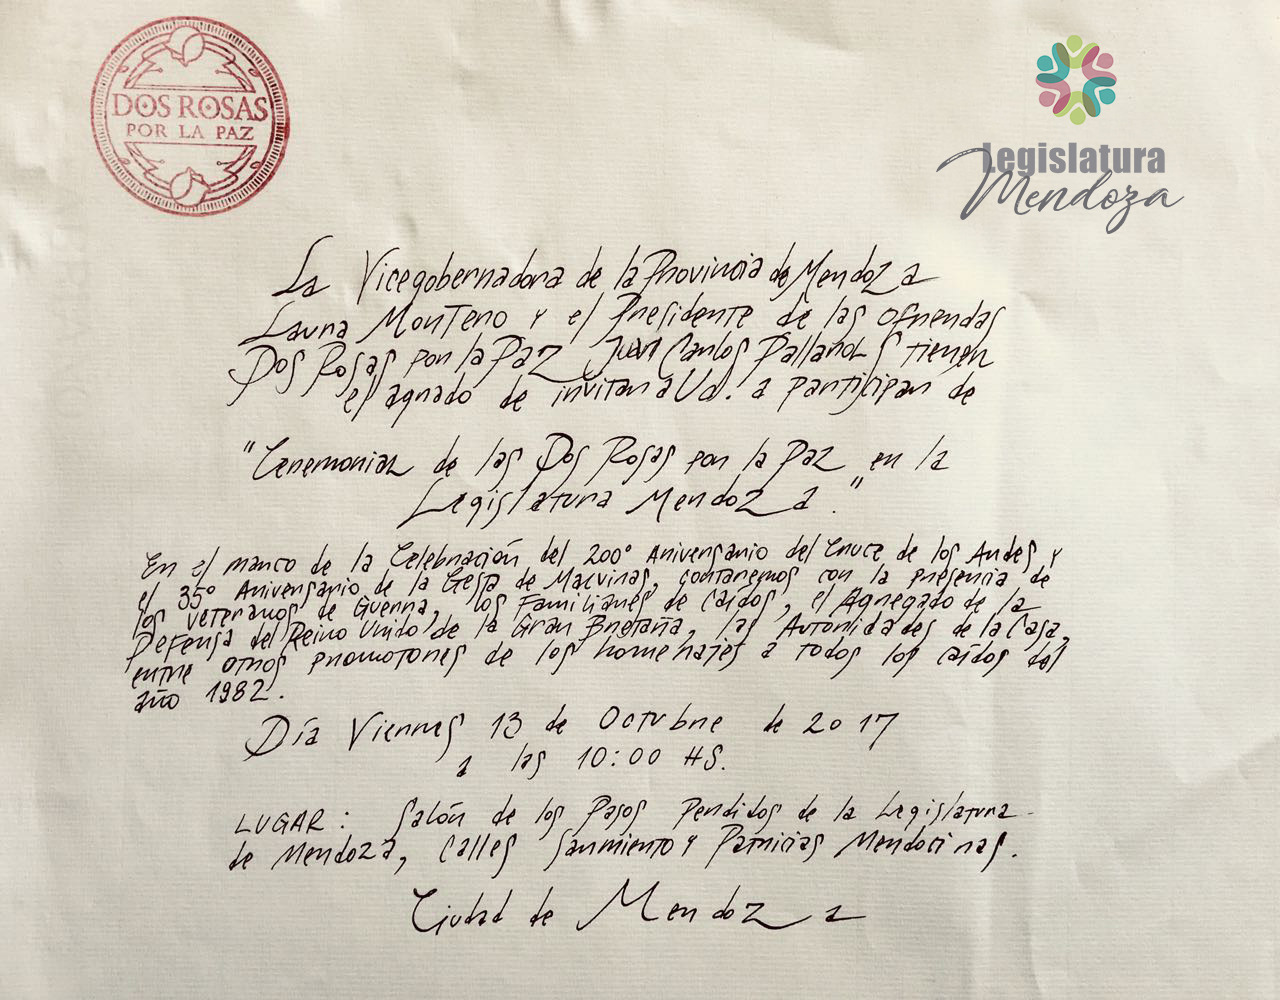 DOS ROSAS
POR LA PAZ
Legislatura
Mendoza
La Vicegobernadora de la Provincia de Mendoza
Laura Montero y el Presidente de las ofrendas
Dos Rosas por la Paz Juan Carlos Pallarols tienen
el agrado de invitar a Ud. a participar de
"Ceremonial de las Dos Rosas por la Paz en la
Legislatura Mendoza."
En el marco de la Celebración del 200° Aniversario del Cruce de los Andes y
el 35° Aniversario de la Gesta de Malvinas, contaremos con la presencia de
los Veteranos de Guerra, los Familiares de Caídos, el Agregado de la
Defensa del Reino Unido de la Gran Bretaña, las Autoridades de la Casa,
entre otros promotores de los homenajes a todos los caídos del
año 1982.
Día Viernes 13 de Octubre de 2017
a las 10:00 HS.
LUGAR: Salón de los Pasos Perdidos de la Legislatura
de Mendoza, Calles Sarmiento y Patricias Mendocinas.
Ciudad de Mendoza